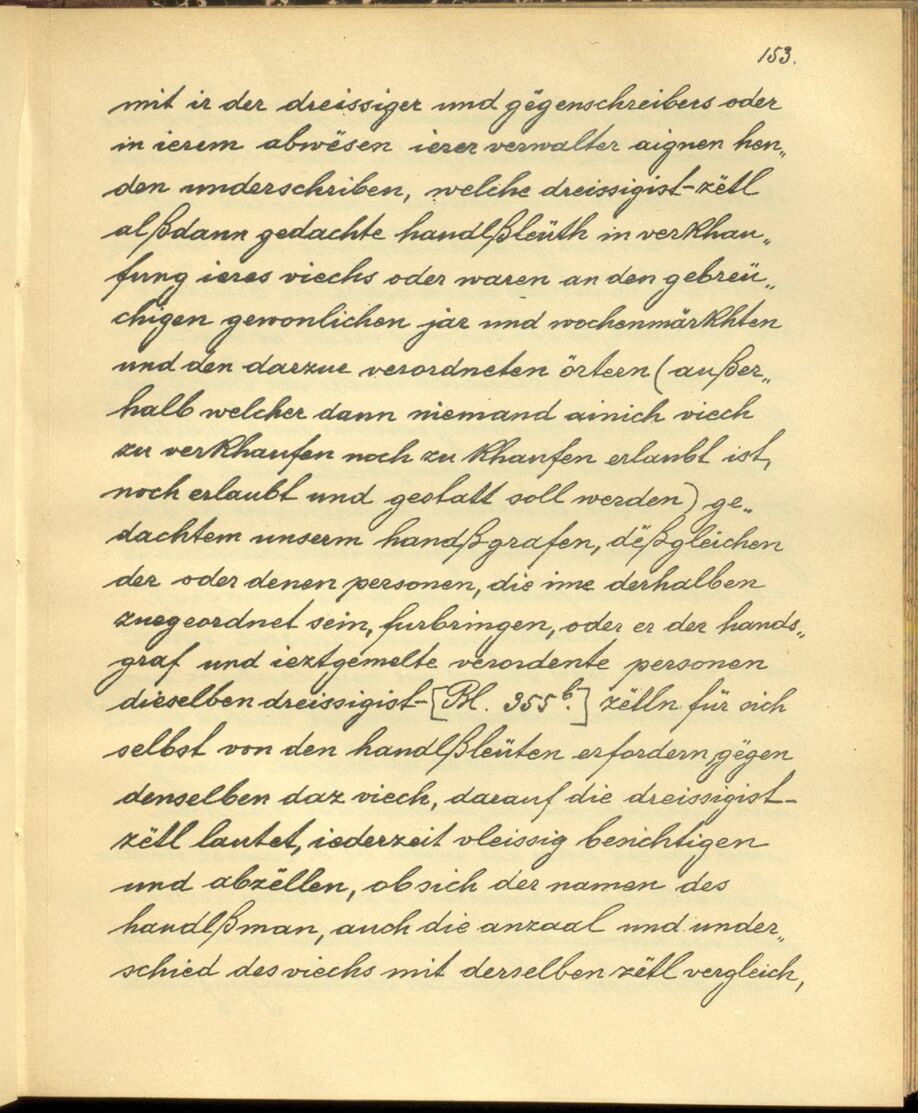 153.
mit ir der dreissiger und gëgenschreibers oder
in ierem abwësen ierer verwalter aignen hen„
den underschriben, welche dreissigist-zëtl
alßdann gedachte handlßleüth in verkhau„
fung ieres viechs oder waren an den gebreü„
chigen gewonlichen jar und wochenmärkhten
und den darzue verordneten örtern (außer„
halb welcher dann niemand ainich viech
zu verkhaufen noch zu khaufen erlaubt ist,
noch erlaubt und gestatt soll werden) ge„
dachtem unserm handßgrafen, dëßgleichen
der oder denen personen, die ime derhalben
zuegeordnet sein, furbringen, oder er der hands„
graf und ieztgemelte verordente personen
dieselben dreissigist-[Bl. 355b.] zëtln für sich
selbst von den handlßleüten erfordern, gëgen
denselben daz viech, darauf die dreissigist-
zëtl lautet, iederzeit vleissig besichtigen
und abzëllen, ob sich der namen des
handlßman, auch die anzaal und under„
schied des viechs mit derselben zëtl vergleich,